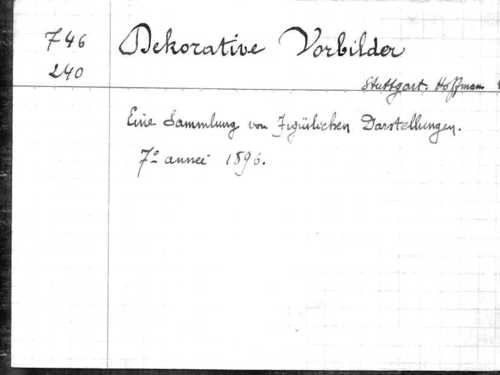 746 Dekorative Vorbilder
240
Stuttgart: Hoffmann
Eine Sammlung von Figürlichen Darstellungen.
7º année 1896.